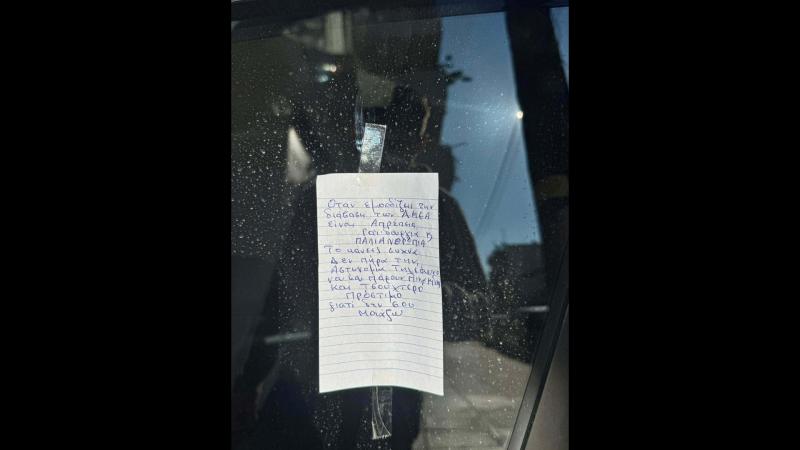 Όταν εμποδίζεις την
διάβαση των ΑΜΕΑ
είναι Απρέπεια
Γαϊδουριά ή
ΠΑΛΙΑΝΘΡΩΠΙΑ
Το κάνεις συχνά
Δεν πήρα την
Αστυνομία Τηλέφωνο
να σου πάρουν
και Τσουχτερό
Πρόστιμο
γιατί δεν σου
Μοιάζω